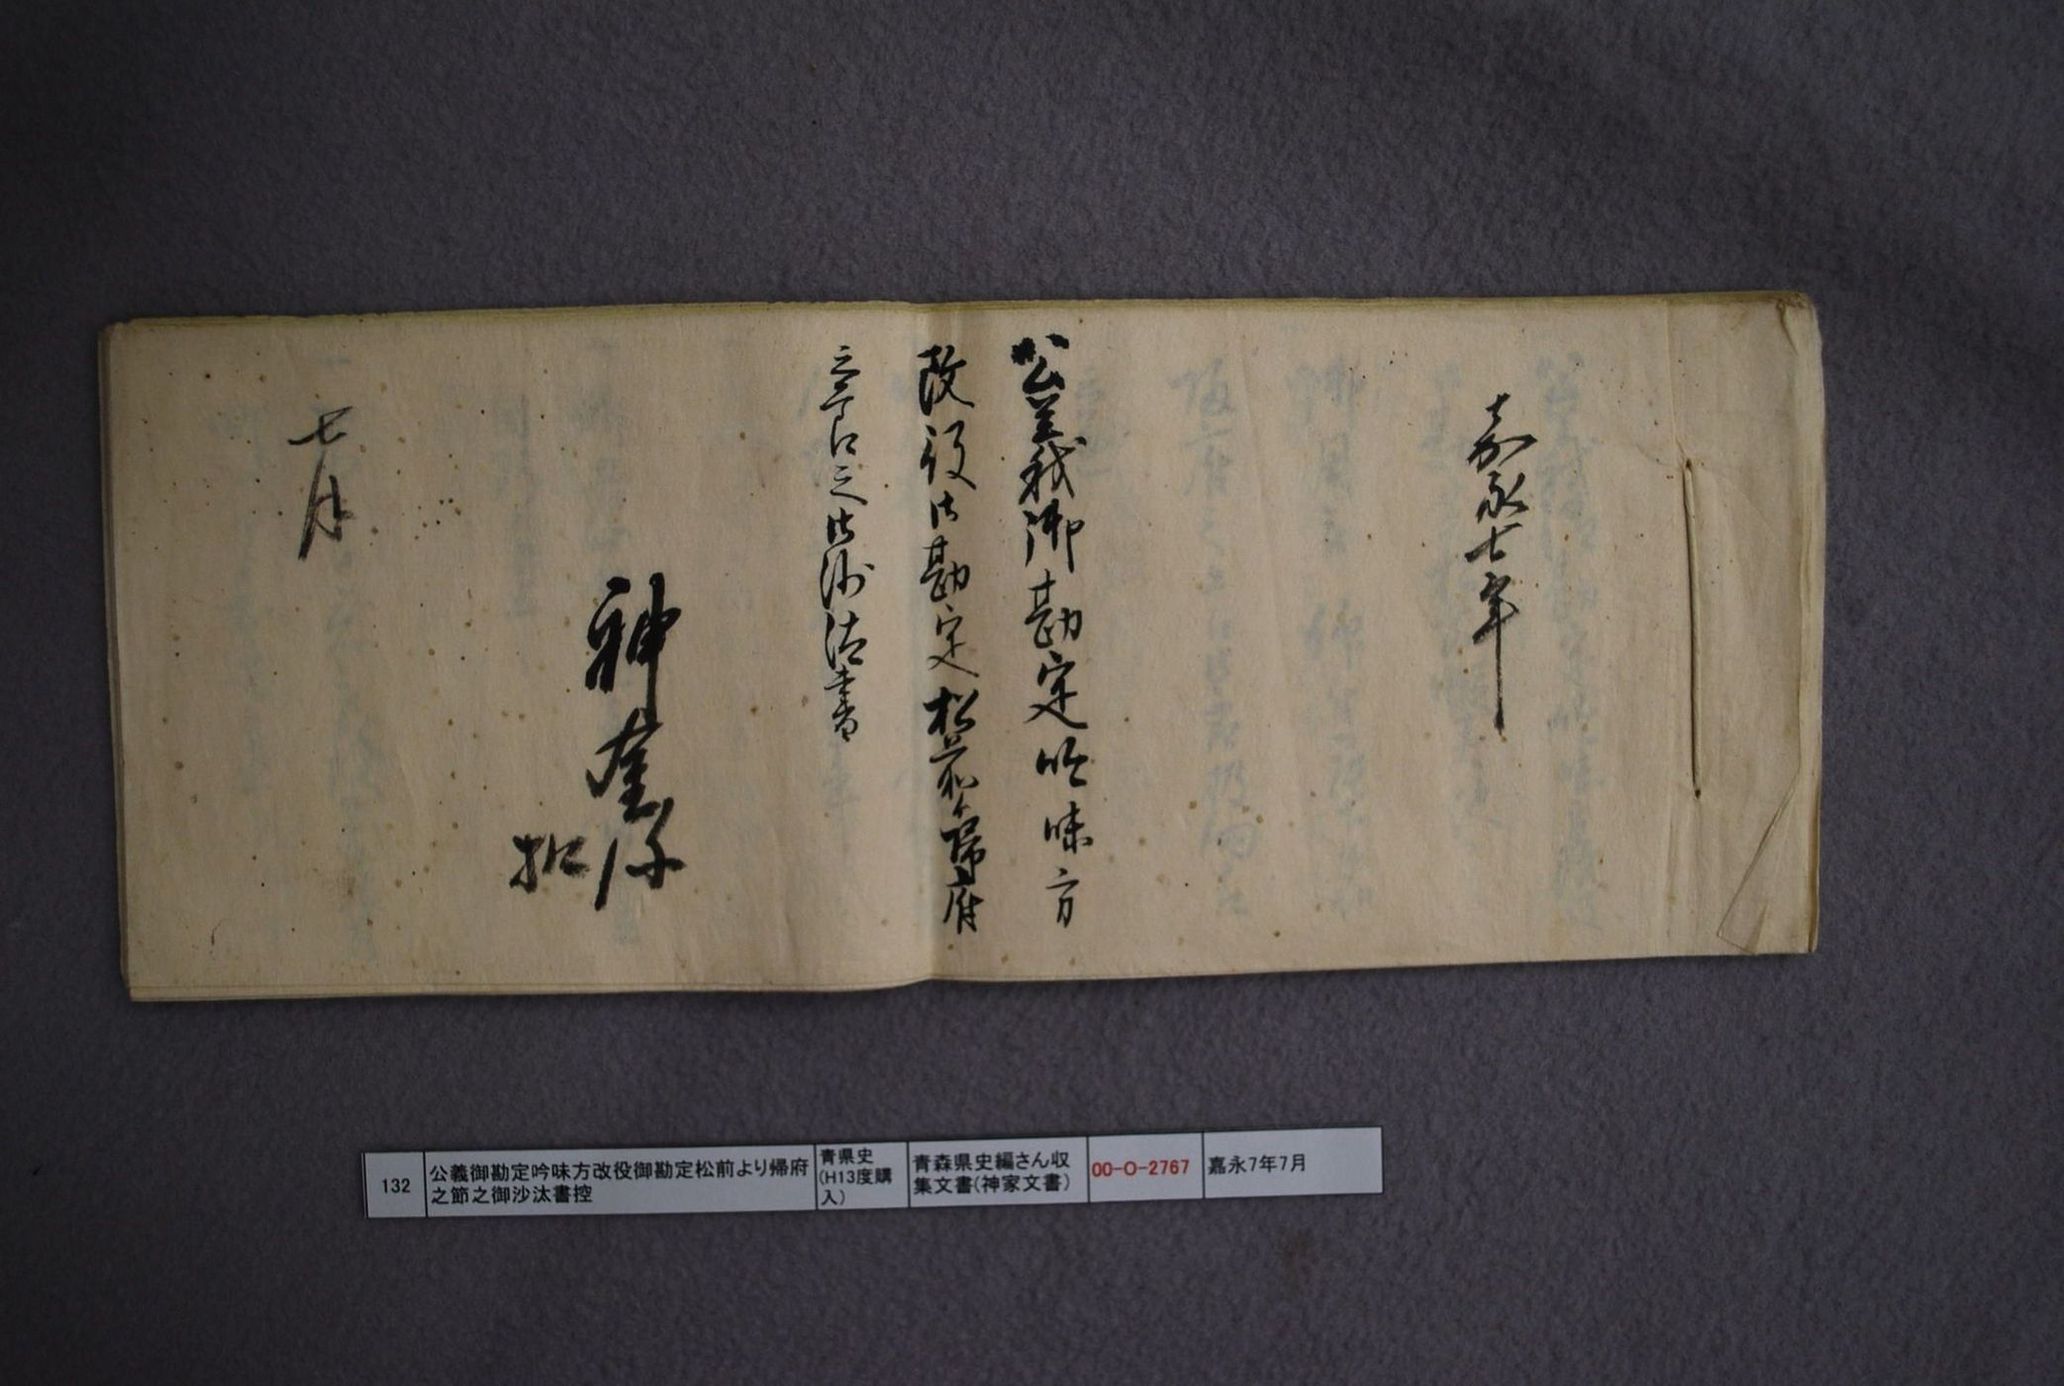 嘉永七年
公義御勘定吟味方
改役御勘定松前ゟ帰府
之節之御沙汰書
神
控
七月
132
公義御勘定吟味方改役御勘定松前より帰府
之節之御沙汰書控
青県史
(H13度購
入)
青森県史編さん収
集文書(神家文書)
00-O-2767
嘉永7年7月